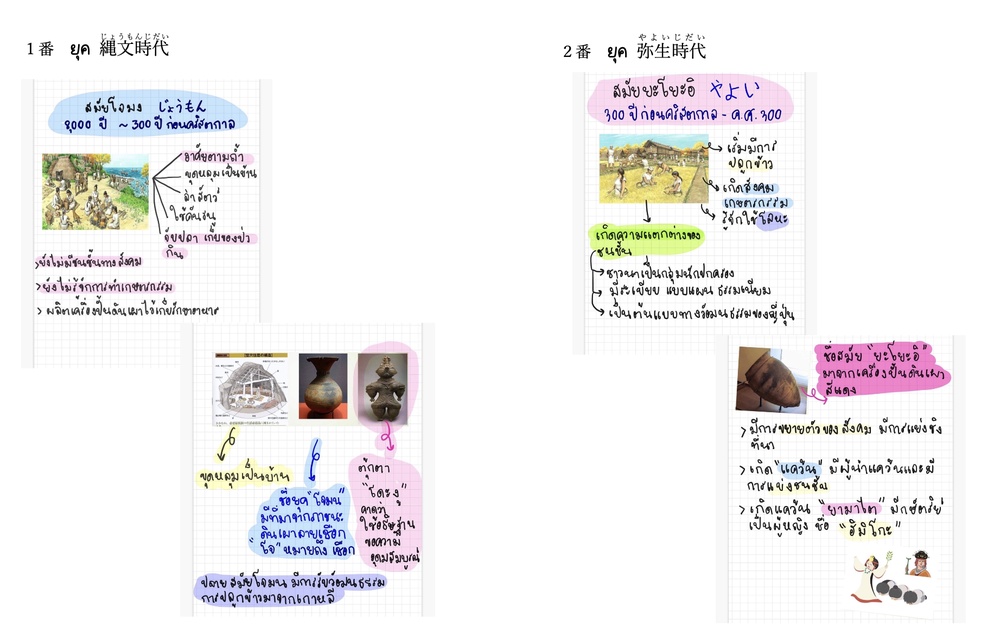 1番 ยุค 縄文時代
じょうもんじだい
สมัยโจมง じょうもん
8,000 ปี ~ 300 ปี ก่อนคริสตกาล
อาศัยตามถ้ำ
ขุดหลุมเป็นบ้าน
ล่าสัตว์
ใช้คันธนู
จับปลา เก็บของป่า
กิน
> ยังไม่มีชนชั้นทางสังคม
> ยังไม่รู้จักการทำเกษตรกรรม
> ผลิตเครื่องปั้นดินเผาไว้เก็บรักษาอาหาร
ขุดหลุมเป็นบ้าน
ชื่อยุค "โจมน"
มีที่มาจากภาชนะ
ดินเผาลายเชือก
"โจ" หมายถึง เชือก
ตุ๊กตา
"โดะงู"
คาดว่า
ใช้อธิษฐาน
ขอความ
อุดมสมบูรณ์
ปลายสมัยโจมน มีการรับวัฒนธรรม
การปลูกข้าวมาจากเกาหลี
2番 ยุค 弥生時代
やよいじだい
สมัยยะโยะอิ やよい
300 ปีก่อนคริสตกาล - ค.ศ. 300
เริ่มมีการ
ปลูกข้าว
เกิดสังคม
เกษตรกรรม
รู้จักใช้โลหะ
เกิดความแตกต่างของ
ชนชั้น
> ชาวนาเป็นกลุ่มนักปกครอง
> มีระเบียบ แบบแผน ธรรมเนียม
> เป็นต้นแบบทางวัฒนธรรมของญี่ปุ่น
ชื่อสมัย "ยะโยะอิ"
มาจากเครื่องปั้นดินเผา
สีแดง
> มีการขยายตัวของสังคม มีการแย่งชิง
ที่นา
> เกิด "แคว้น" มีผู้นำแคว้นและมี
การแบ่งชนชั้น
> เกิดแคว้น "ยามาไต" มีกษัตริย์
เป็นผู้หญิง ชื่อ "ฮิมิโกะ"